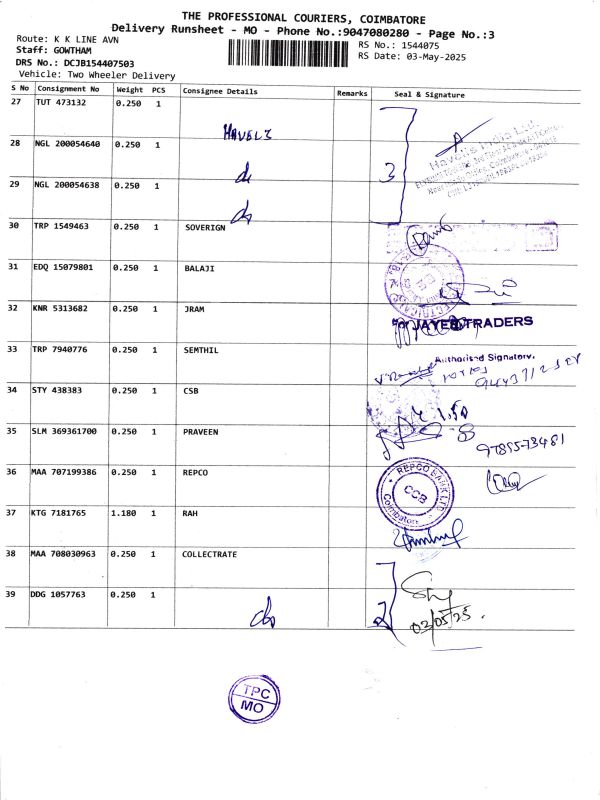 THE PROFESSIONAL COURIERS, COIMBATORE
Delivery Runsheet - MO - Phone No.:9047080280 - Page No.:3
Route: K K LINE AVN
RS No.: 1544075
Staff: GOWTHAM
RS Date: 03-May-2025
DRS No.: DCJB154407503
Vehicle: Two Wheeler Delivery
S No Consignment No Weight PCS Consignee Details Remarks Seal & Signature
27 TUT 473132 0.250 1 HAVELS
28 NGL 200054640 0.250 1 do
3
Havells India Ltd.
29 NGL 200054638 0.250 1 do
30 TRP 1549463 0.250 1 SOVERIGN
31 EDQ 15079801 0.250 1 BALAJI
32 KNR 5313682 0.250 1 JRAM
For JAYEE TRADERS
33 TRP 7940776 0.250 1 SEMTHIL
Authorised Signatory.
34 STY 438383 0.250 1 CSB
35 SLM 369361700 0.250 1 PRAVEEN
9789573481
36 MAA 707199386 0.250 1 REPCO
REPCO BANK LTD
CCB
Coimbatore
37 KTG 7181765 1.180 1 RAH
38 MAA 708030963 0.250 1 COLLECTRATE
39 DDG 1057763 0.250 1 do
2
03/05/25.
TPC
MO